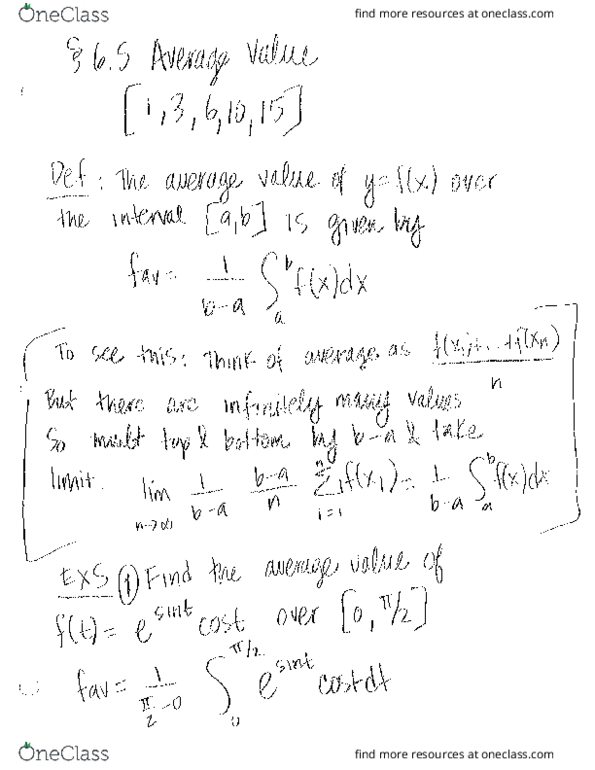 OneClass find more resources at oneclass.com
§ 6.5 Average Value
[1, 3, 6, 10, 15]
Def: The average value of y=f(x) over
the interval [a,b] is given by
fav = 1/(b-a) ∫_a^b f(x)dx
To see this: Think of average as (f(x₁)+...+f(xn))/n
But there are infinitely many values
So mult top & bottom by b-a & take
limit. lim_{n→∞} 1/(b-a) (b-a)/n Σ_{i=1}^n f(x_i) = 1/(b-a) ∫_a^b f(x)dx
EXS ① Find the average value of
f(t) = e^{sint} cost over [0, π/2]
fav = 1/(π/2-0) ∫_0^{π/2} e^{sint} cost dt
OneClass find more resources at oneclass.com